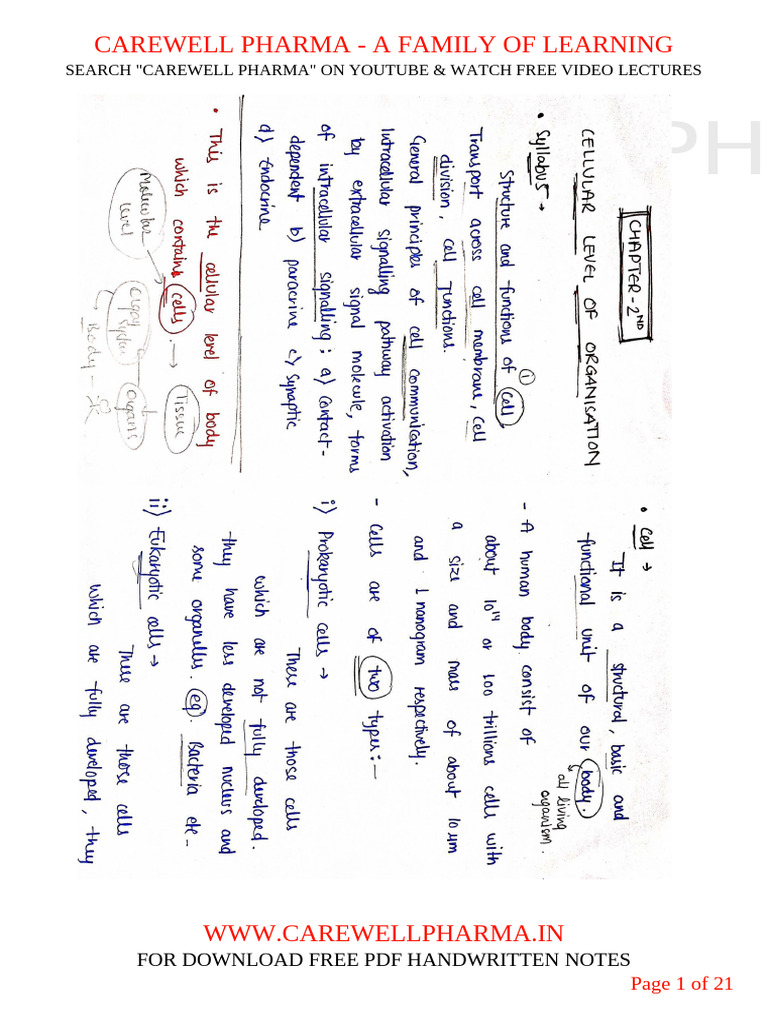 CAREWELL PHARMA - A FAMILY OF LEARNING
SEARCH "CAREWELL PHARMA" ON YOUTUBE & WATCH FREE VIDEO LECTURES
PH
CHAPTER-2ND
CELLULAR LEVEL OF ORGANISATION
• Syllabus →
Structure and functions of cell, ①
Transport across cell membrane, cell
division, cell junctions.
General principles of cell communication,
Intracellular signalling pathway activation
by extracellular signal molecule, forms
of intracellular signalling; a) contact-
dependent b) paracrine c) synaptic
d) Endocrine
• This is the cellular level of body
which contains cells. → Tissue
Molecular level
Organ System
Organs
Body -
• Cell →
It is a structural, basic and
functional unit of our body.
all living
organism.
- A human body consist of
about 10¹⁴ or 100 trillions cells with
a size and mass of about 10 µm
and 1 nanogram respectively.
- Cells are of two types:-
i) Prokaryotic cells →
There are those cells
which are not fully developed.
they have less developed nucleus and
some organelles. eg. Bacteria etc-
ii) Eukaryotic cells →
There are those cells
which are fully developed, they
WWW.CAREWELLPHARMA.IN
FOR DOWNLOAD FREE PDF HANDWRITTEN NOTES
Page 1 of 21